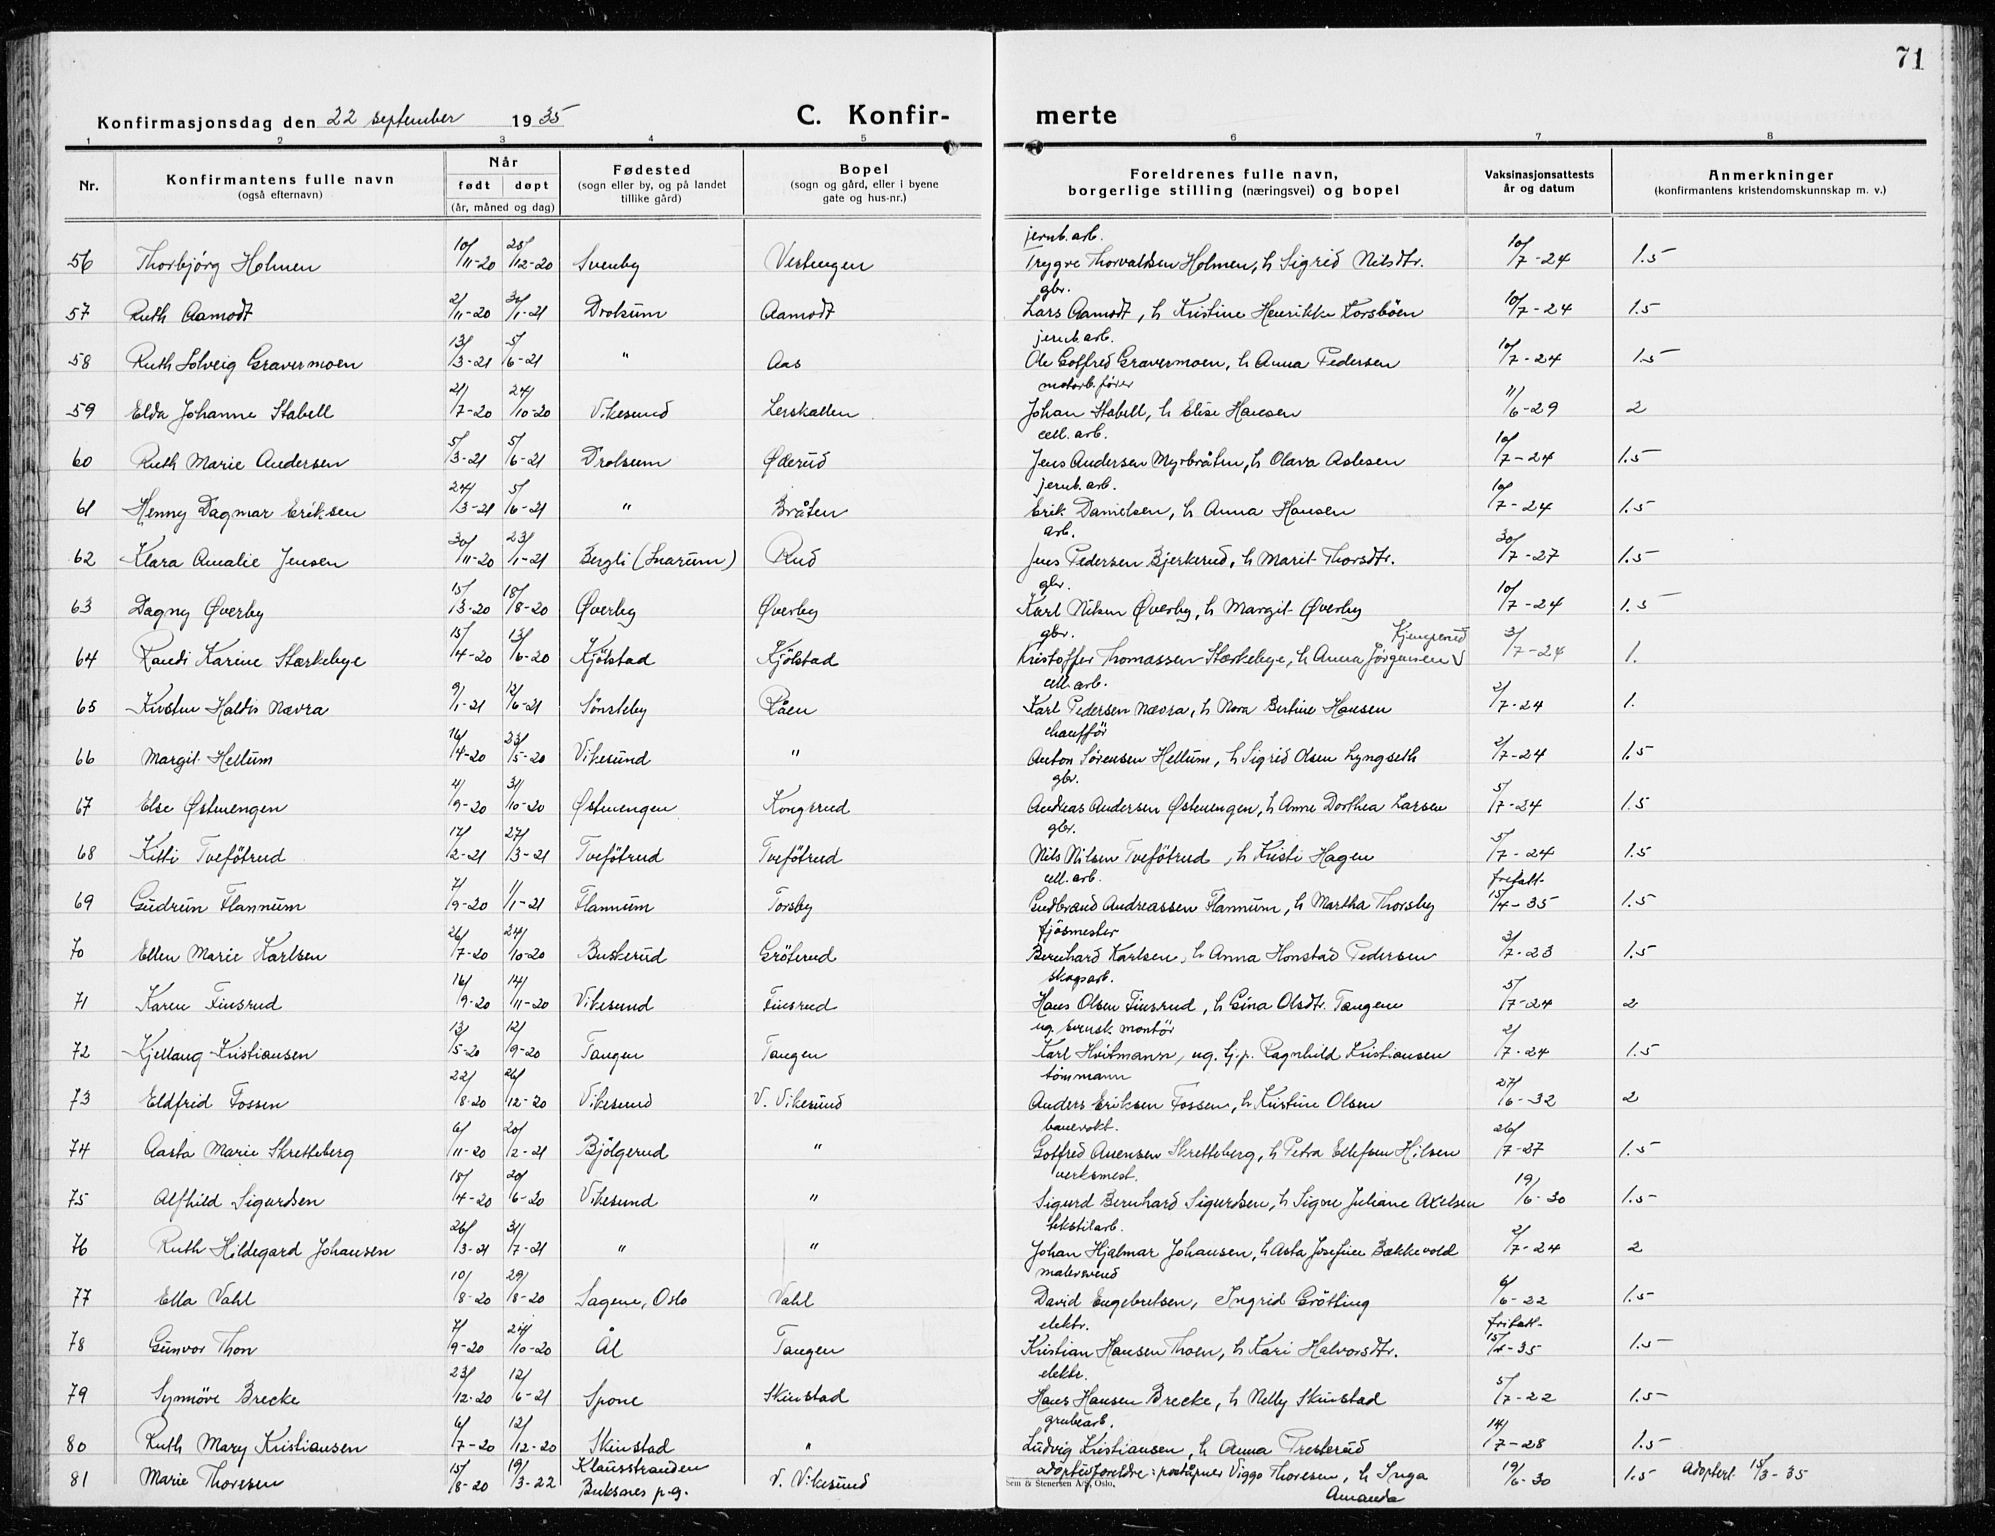 71
Konfirmasjonsdag den 22 september 1935
C. Konfir- merte
1 2 3 4 5 6 7 8
Nr. | Konfirmantens fulle navn (også efternavn) | Når født døpt (år, måned og dag) | Fødested (sogn eller by, og på landet tillike gård) | Bopel (sogn og gård, eller i byene gate og hus-nr.) | Foreldrenes fulle navn, borgerlige stilling (næringsvei) og bopel | Vaksinasjonsattests år og datum | Anmerkninger (konfirmantens kristendomskunnskap m. v.)
jernb. arb.
56 Thorbjörg Holmen 10/11-20 28/12-20 Svenby Vestengen Trygve Thorvaldsen Holmen, h Sigrid Nilsdtr. 10/7-24 1.5
gbr.
57 Ruth Aamodt 2/11-20 30/1-21 Drolsum Aamodt Lars Aamodt, h Kristine Henrikke Korsböen 10/7-24 1.5
jernb. arb.
58 Ruth Solveig Gravermoen 13/3-21 5/6-21 " Aas Ole Gotfred Gravermoen, h Anna Pedersen 10/7-24 1.5
motorb. fører
59 Elda Johanne Stabell 21/7-20 24/10-20 Vikesund Lerskallen Johan Stabell, h Elise Hansen 11/6-29 2
cell. arb.
60 Ruth Marie Andersen 5/3-21 5/6-21 Drolsum Øderud Jens Andersen Myrbråten, h Olava Aslesen 10/7-24 1.5
jernb. arb.
61 Henny Dagmar Eriksen 24/3-21 5/6-21 " Bråten Erik Danielsen, h Anna Hansen 10/7-24 1.5
arb.
62 Klara Amalie Jensen 30/11-20 23/1-21 Bergli (Snarum) Rud Jens Pedersen Bjerkerud, h Marit Thorsdtr. 30/7-27 1.5
gbr.
63 Dagny Øverby 15/3-20 18/8-20 Øverby Øverby Karl Nilsen Øverby, h Margit Øverby 10/7-24 1.5
gbr. Kjengerud
64 Randi Karine Stærkebye 15/4-20 13/6-20 Kjölstad Kjölstad Kristoffer Thomassen Stærkebye, h Anna Jörgensen 3/7-24 1.
cell. arb.
65 Kirsten Haldis Nævra 9/1-21 12/6-21 Sönsteby Råen Karl Pedersen Nævra, h Nora Bertine Hansen 2/7-24 1.
chaufför
66 Margit Hellum 16/4-20 23/5-20 Vikesund " Anton Sörensen Hellum, h Sigrid Olsen Lyngseth 2/7-24 1.5
gbr.
67 Else Østenengen 4/9-20 31/10-20 Østenengen Kongsrud Andreas Andersen Østenengen, h Anne Dorthea Larsen 5/7-24 1.5
gbr.
68 Kitti Tvefötrud 17/2-21 27/3-21 Tvefötrud Tvefötrud Nils Nilsen Tvefötrud, h Kristi Hagen 5/7-24 1.5
cell. arb. fritatt
69 Gudrun Flannum 7/9-20 1/1-21 Flannum Torsby Gudbrand Andreassen Flannum, h Martha Thorsby 15/4-35 1.5
fjösmester
70 Ellen Marie Karlsen 26/7-20 24/10-20 Buskerud Gröterud Bernhard Karlsen, h Anna Honstad Pedersen 3/7-23 1.5
skogsarb.
71 Karen Finsrud 16/9-20 14/11-20 Vikesund Finsrud Hans Olsen Finsrud, h Gina Olsdtr. Tangen 5/7-24 2
ug. svensk montör
72 Kjellaug Kristiansen 13/5-20 12/9-20 Tangen Tangen Karl Hvitmann, ug. tj.p. Ragnhild Kristiansen 2/7-24 1.5
tömmann
73 Eldfrid Fossen 22/8-20 26/12-20 Vikesund V. Vikesund Anders Eriksen Fossen, h Kristine Olsen 27/6-32 2
banevokt.
74 Aasta Marie Skretteberg 6/11-20 20/2-21 Bjölgerud " Gotfred Auensen Skretteberg, h Petra Ellefsen Hilsen 26/7-27 1.5
verksmest.
75 Alfhild Sigurdsen 15/4-20 20/6-20 Vikesund " Sigurd Bernhard Sigurdsen, h Signe Juliane Axelsen 19/6-30 1.5
tekstilarb.
76 Ruth Hildegard Johansen 26/3-21 31/7-21 " " Johan Hjalmar Johansen, h Asta Josefine Bækkevold 2/7-24 2
malersvend
77 Ella Vahl 10/8-20 29/8-20 Sagene, Oslo Vahl David Engebretsen, Ingrid Grötting 6/6-22 1.5
elektr. fritatt
78 Gunvor Thon 7/9-20 24/10-20 Ål Tangen Kristian Hansen Thoen, h Kari Halvorsdtr. 15/4-35 1.5
elektr.
79 Synnöve Brecke 23/12-20 12/6-21 Spone Skinstad Hans Hansen Brecke, h Nelly Skinstad 5/7-22 1.5
grubearb.
80 Ruth Mary Kristiansen 6/7-20 12/12-20 Skinstad " Ludvig Kristiansen, h Anna Presterud 14/7-28 1.5
81 Marie Thoresen 15/8-20 19/3-22 Klausstranden Buksnes p.g. V. Vikesund adoptivforeldre: poståpner Viggo Thoresen, h Inga Amanda 19/6-30 1.5 Adoptert 15/3-35
Sem & Stenersen A/S, Oslo.